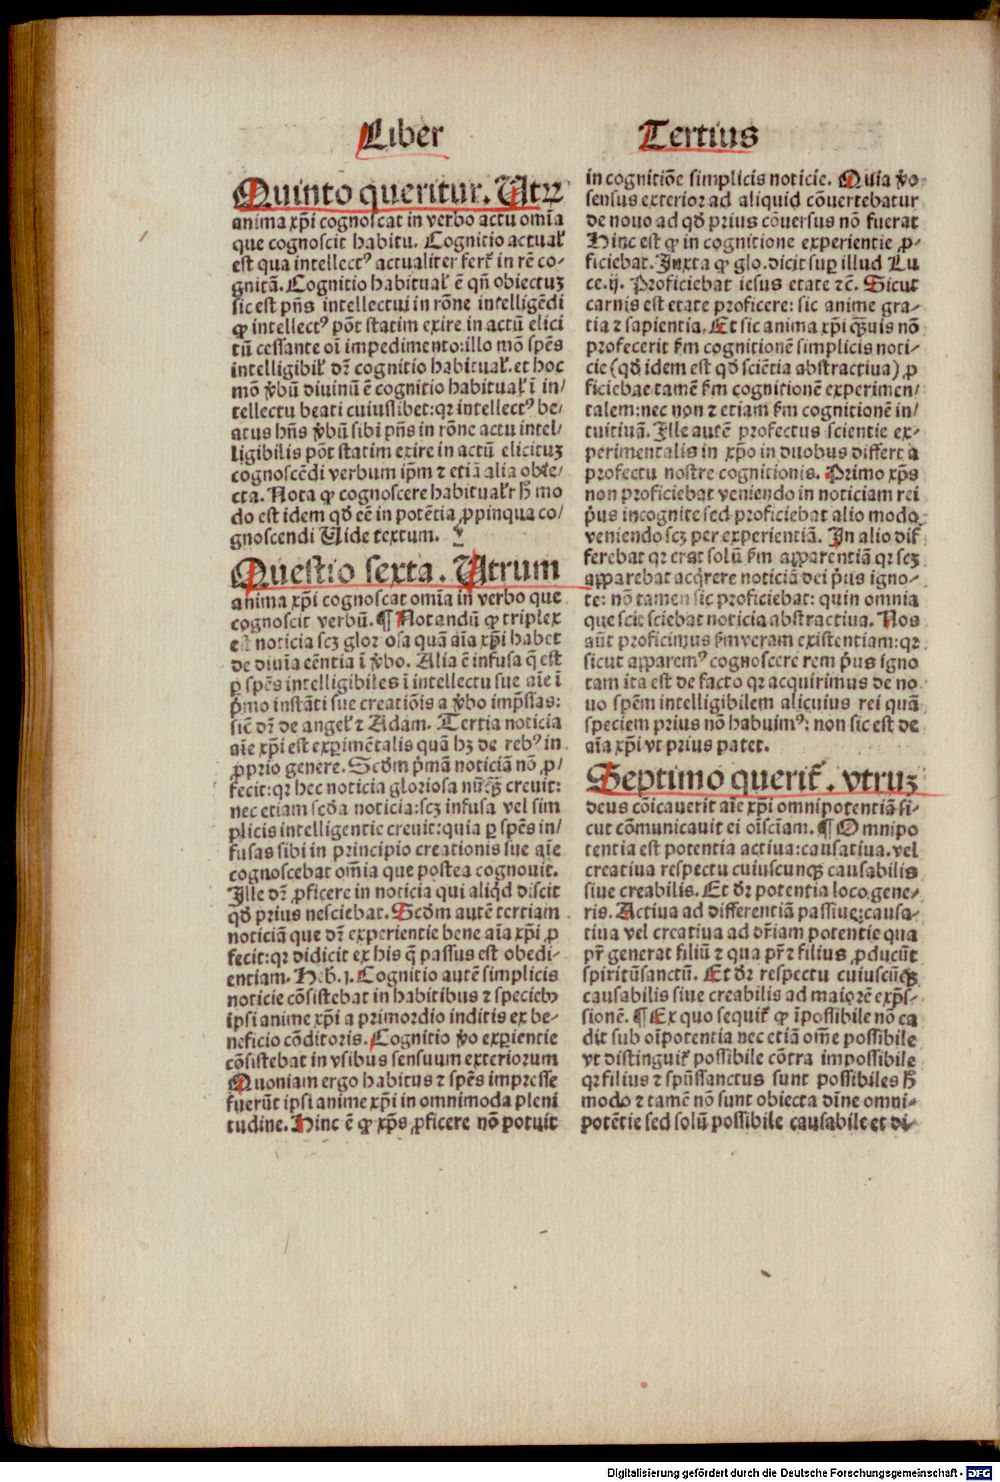 Liber Tertius
Quinto queritur. Utrꝝ
anima xp̄i cognoscat in verbo actu om̄ia
que cognoscit habitu. Cognitio actual̕
est qua intellectꝰ actualiter fert̕ in rē co-
gnitā. Cognitio habitual̕ ē qn̄ obiectuꝫ
sic est pn̄s intellectui in rōne intelligēdi
ꝙ intellectꝰ pōt statim exire in actū elici
tū cessante oī impedimento: illo mō spēs
intelligibil̕ dr̄ cognitio habitual̕. et hoc
mō v̄bū diuinū ē cognitio habitual̕ ī in/
tellectu beati cuiuslibet: qꝛ intellectꝰ be/
atus hn̄s v̄bū sibi pn̄s in rōne actu intel/
ligibilis pōt statim exire in actū elicituꝫ
cognoscēdi verbum ip̄m ⁊ etiā alia obie/
cta. Nota ꝙ cognoscere habitual̕r h̄ mo
do est idem qd̄ eē in potētia ꝓpinqua co/
gnoscendi Uide textum.
Questio sexta. Utrum
anima xp̄i cognoscat om̄ia in verbo que
cognoscit verbū. ¶ Notandū ꝙ triplex
est noticia scꝫ gloriosa quā aīa xp̄i habet
de diuīa eēntia ī v̄bo. Alia ē infusa q̄ est
ꝑ spēs intelligibiles ī intellectu sue aīe ī
p̄mo instāti sue creatiōis a v̄bo imp̄ssas:
siē dr̄ de angel̕ ⁊ Adam. Tertia noticia
aīe xp̄i est exꝑimētalis quā hꝫ de rebꝰ in
ꝓprio genere. Scd̄m p̄mā noticiā nō ꝓ/
fecit: qꝛ hec noticia gloriosa nūꝙ̄ creuit:
nec etiam scd̄a noticia: scꝫ infusa vel sim
plicis intelligentie creuit: quia ꝑ spēs in/
fusas sibi in principio creationis sue aīe
cognoscebat om̄ia que postea cognouit.
Ille dr̄ ꝓficere in noticia qui aliqd̄ discit
qd̄ prius nesciebat. Scd̄m autē tertiam
noticiā que dr̄ experientie bene aīa xp̄i ꝓ
fecit: qꝛ didicit ex his q̄ passus est obedi-
entiam. Heb. j. Cognitio autē simplicis
noticie cōsistebat in habitibus ⁊ speciebꝰ
ipsi anime xp̄i a primordio inditis ex be-
neficio cōditoris. Cognitio v̄o exꝑientie
cōsistebat in vsibus sensuum exteriorum
Quoniam ergo habitus ⁊ spēs impresse
fuerūt ipsi anime xp̄i in omnimoda pleni
tudine. Hinc ē ꝙ xp̄s ꝓficere nō potuit
in cognitiōe simplicis noticie. Quia v̄o
sensus exterior ad aliquid cōuertebatur
de nouo ad qd̄ prius cōuersus nō fuerat
Hinc est ꝙ in cognitione experientie ꝓ-
ficiebat. Juxta ꝙ glo. dicit suꝑ illud Lu
ce. ij. Proficiebat iesus etate ⁊c̄. Sicut
carnis est etate proficere: sic anime gra-
tia ⁊ sapientia. Et sic anima xp̄i q̄ꝫuis nō
profecerit ẜm cognitionē simplicis noti-
cie (qd̄ idem est qd̄ sciētia abstractiua) ꝓ
ficiebat tamē ẜm cognitionē experimen/
talem: nec non ⁊ etiam ẜm cognitionē in/
tuitiuā. Ille autē profectus scientie ex-
perimentalis in xp̄o in duobus differt a
profectu nostre cognitionis. Primo xp̄s
non proficiebat veniendo in noticiam rei
p̄us incognite sed proficiebat alio modo
veniendo scꝫ per experientiā. In alio dif̕
ferebat qꝛ erat solū ẜm apparentiā qꝛ scꝫ
apparebat acq̄rere noticiā dei p̄us igno-
te: nō tamen sic proficiebat: quin omnia
que scit sciebat noticia abstractiua. Nos
aūt proficimus ẜm veram existentiam: qꝛ
sicut apparemꝰ cognoscere rem p̄us igno
tam ita est de facto qꝛ acquirimus de no
uo spēm intelligibilem alicuius rei quā
speciem prius nō habuimꝰ: non sic est de
aīa xp̄i vt prius patet.
Septimo querit̕. vtruꝫ
deus cōicauerit aīe xp̄i omnipotentiā si-
cut cōmunicauit ei oīsciam. ¶ Omnipo
tentia est potentia actiua: causatiua. vel
creatiua respectu cuiuscunqꝫ causabilis
siue creabilis. Et dr̄ potentia loco gene-
ris. Actiua ad differentiā passiue: causa-
tiua vel creatiua ad dr̄iam potentie qua
pr̄ generat filiū ⁊ qua pr̄ ⁊ filius ꝓducūt
spiritūsanctū. Et dr̄ respectu cuiuscūqꝫ
causabilis siue creabilis ad maiorē exp̄s-
sionē. ¶ Ex quo sequit̕ ꝙ īpossibile nō ca
dit sub oīpotentia nec etiā om̄e possibile
vt distinguit̕ possibile cōtra impossibile
qꝛ filius ⁊ spūssanctus sunt possibiles h̄
modo ⁊ tamē nō sunt obiecta dīne omni-
potētie sed solū possibile causabile et di-
Digitalisierung gefördert durch die Deutsche Forschungsgemeinschaft - DFG